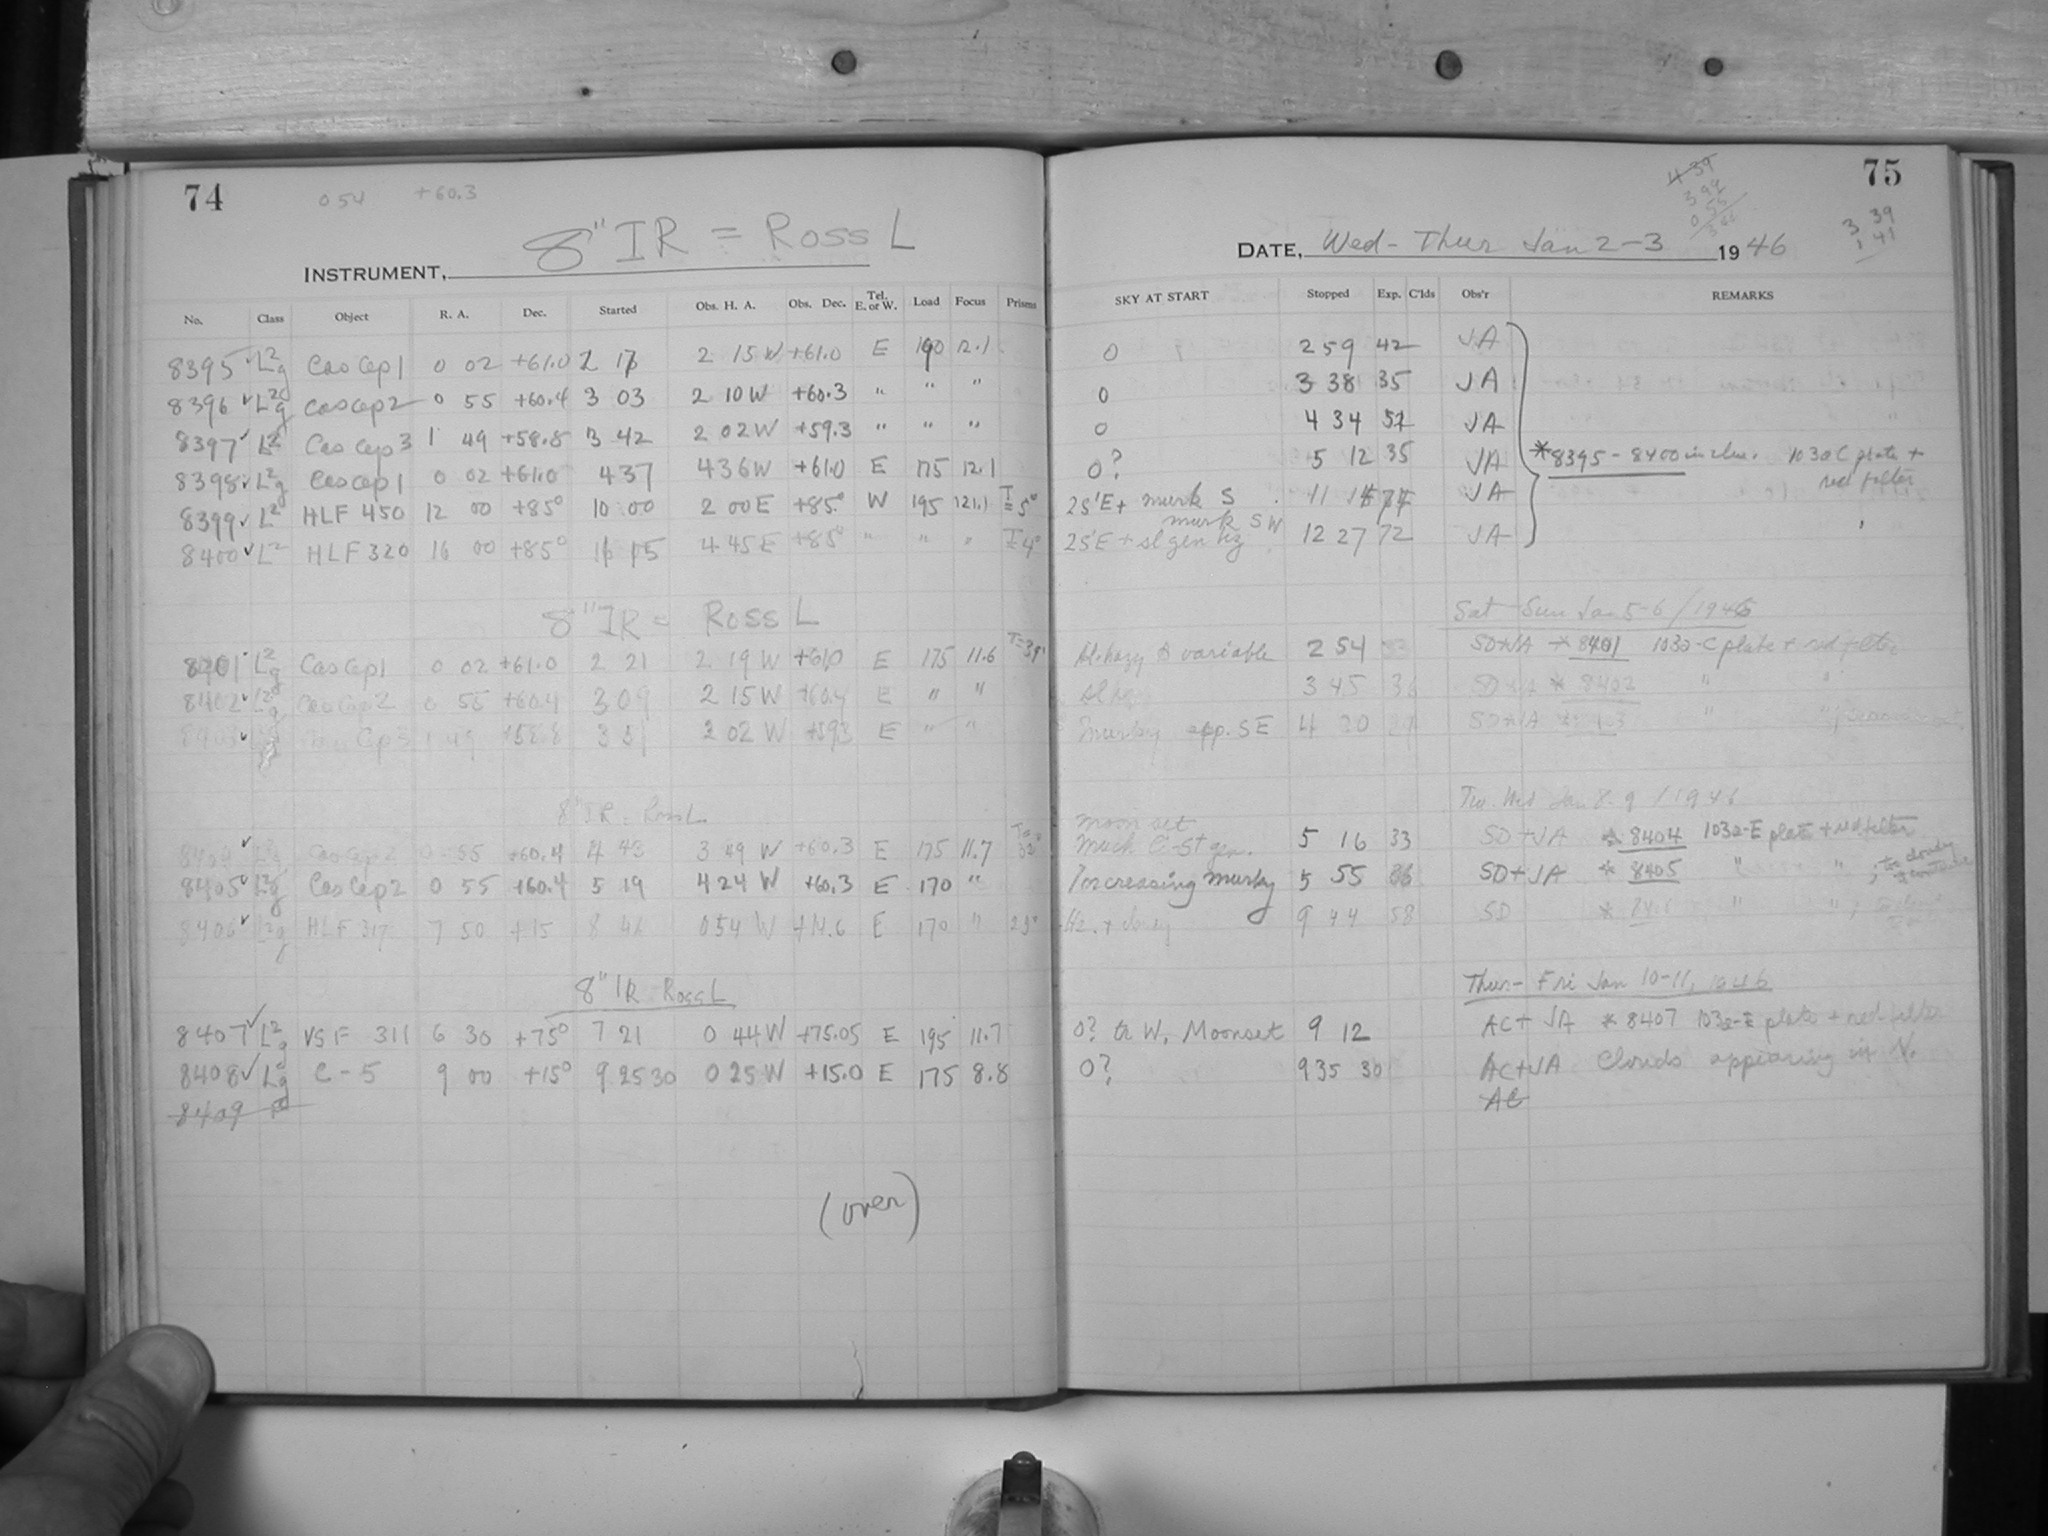 74
0 54 +60.3
INSTRUMENT, 8" IR = ROSS L
No. Class Object R. A. Dec. Started Obs. H. A. Obs. Dec. Tel. E. or W. Load Focus Prisms
8395 ✓ L2g CasCep1 0 02 +61.0 2 17 2 15 W +61.0 E 190 12.1
8396 ✓ L2g CasCep2 0 55 +60.4 3 03 2 10 W +60.3 " " "
8397 ✓ L2 Cas Cep 3 1 49 +58.8 3 42 2 02 W +59.3 " " "
8398 ✓ L2g CasCep1 0 02 +61.0 4 37 4 36 W +61.0 E 175 12.1
8399 ✓ L2 HLF 450 12 00 +85° 10 00 2 00 E +85° W 195 12.1 T = 5°
8400 ✓ L2 HLF 320 16 00 +85° 11 15 4 45 E +85° " " " T = 4°
8" IR = ROSS L
L2g CasCep1 0 02 +61.0 2 21 2 19 W E 175 11.6
8402 ✓ CasCep2 0 55 +60.4 3 09 2 15 W +60.4 E " "
Cep3 1 49 +58.8 3 31 2 02 W +59.3 E " "
8" IR = Ross L
0 55 +60.4 4 43 3 49 W +60.3 E 175 11.7
8405 ✓ L2g CasCep2 0 55 +60.4 5 19 4 24 W +60.3 E 170 "
8406 ✓ L2g HLF 317 7 50 +15 8 46 0 54 W +14.6 E 170 " 23°
8" IR Ross L
8407 ✓ L2g VSF 311 6 30 +75° 7 21 0 44 W +75.05 E 195 11.7
8408 ✓ Lg C-5 9 00 +15° 9 25 30 0 25 W +15.0 E 175 8.8
8409
(over)
75
4 39
3 39
1 41
DATE, Wed - Thur Jan 2-3 1946
SKY AT START Stopped Exp. C'lds Obs'r REMARKS
0 2 59 42 JA
0 3 38 35 JA
0 4 34 52 JA
0? 5 12 35 JA *8395 - 8400 inclu. 103a C plate + red filter
25'E + murk S 11 14 74 JA
murk SW
25'E + sl gen hz 12 27 72 JA
Sat - Sun Jan 5-6/1946
sl. hazy & variable 2 54 33 SD+JA * 8401 103a-C plate + red filter
sl hz 3 45 36 SD+JA * 8402 " "
Murky app. SE 4 20 29 SD+JA " "
Tu. Wed Jan 8-9/1946
moon set
Much Ci-St gen. 5 16 33 SD+JA * 8404 103a-E plate + red filter
Increasing murky 5 55 36 SD+JA * 8405 " " ; too cloudy
Hz. + 9 44 58 SD * " "
Thur - Fri Jan 10-11, 1946
0? to W. Moonset 9 12 AC+JA * 8407 103a-E plate + red filter
0? 9 35 30 AC+JA Clouds appearing in N.
AC